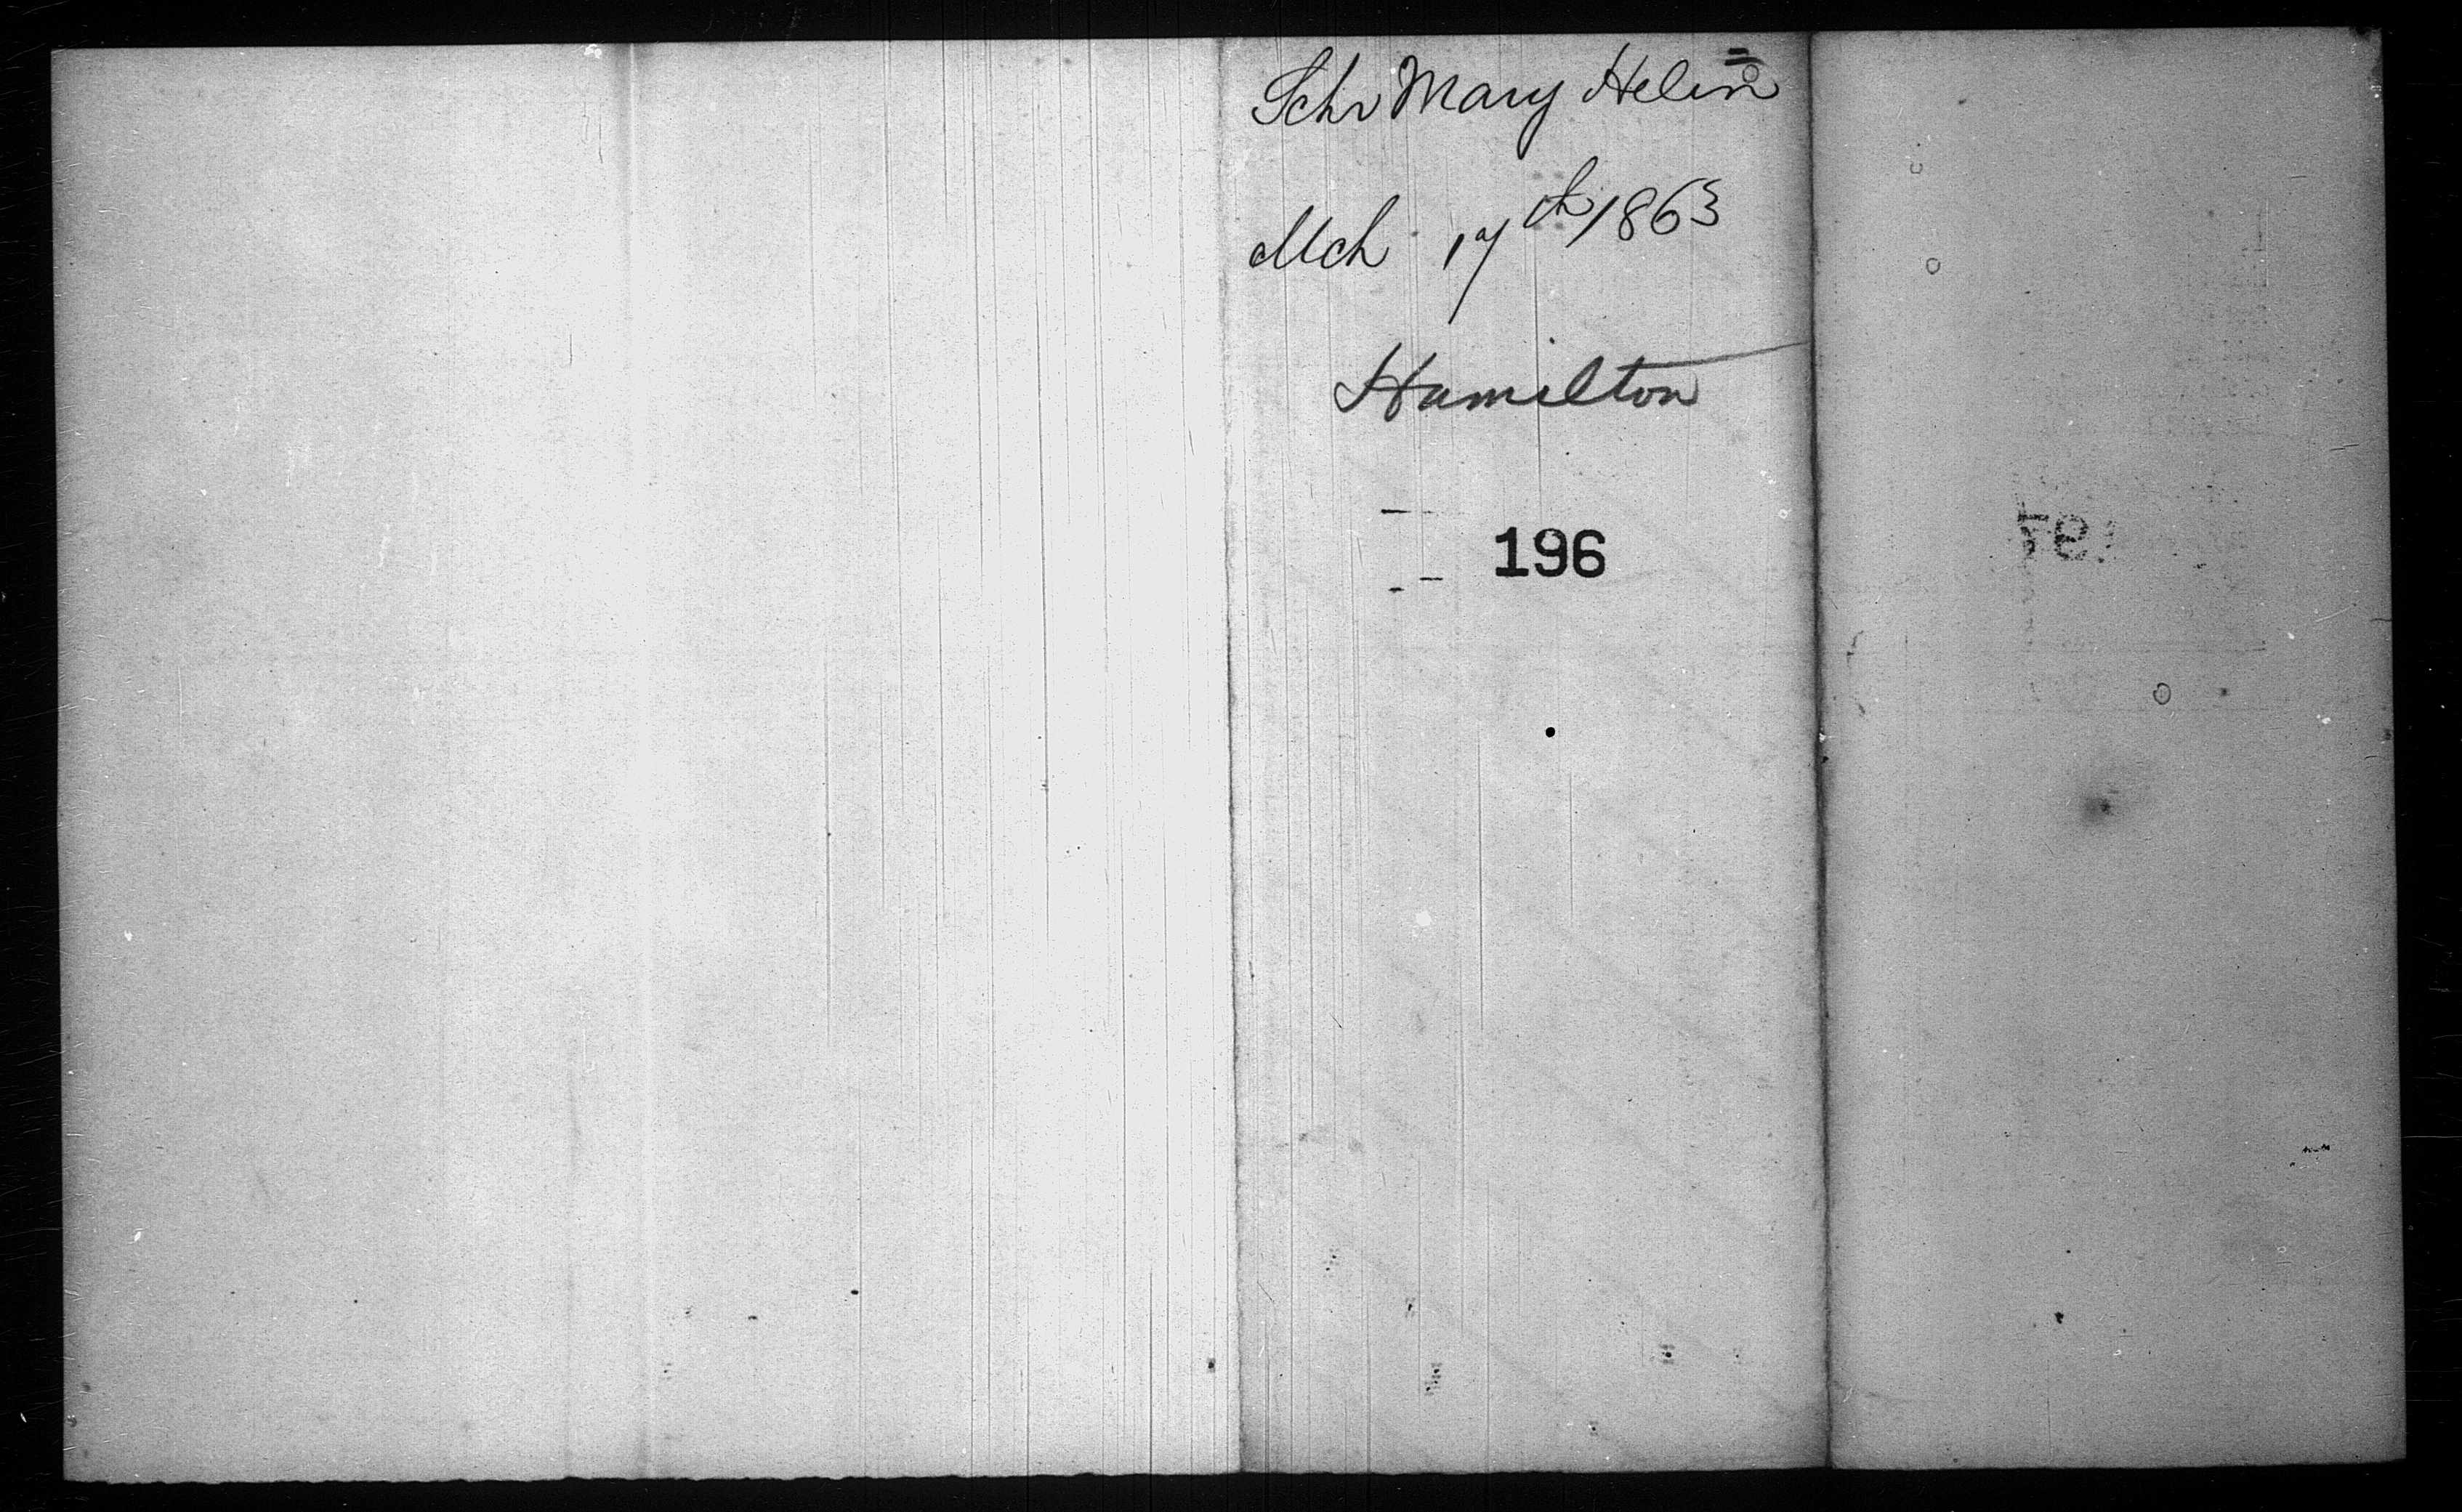 Schr Mary Helen
Mch 17th 1863
Hamilton
196